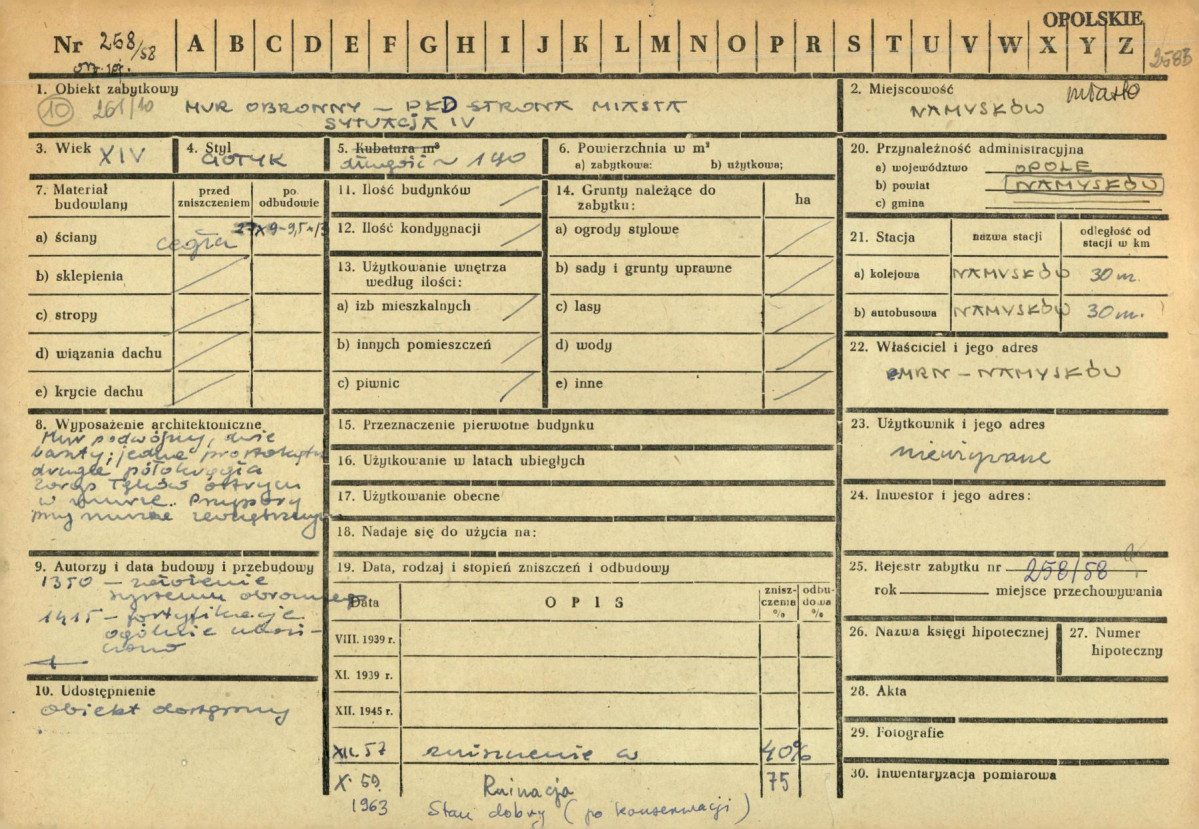 OPOLSKIE
Nr 258/58 A B C D E F G H I J K L M N O P R S T U V W X Y Z
258B
1. Obiekt zabytkowy
10 261/10 MUR OBRONNY – PŁD STRONA MIASTA
SYTUACJA IV
2. Miejscowość miasto
NAMYSŁÓW
3. Wiek XIV
4. Styl GOTYK
5. Kubatura m³
długość ~ 190
6. Powierzchnia w m²
a) zabytkowa: b) użytkowa;
20. Przynależność administracyjna
a) województwo OPOLE
b) powiat NAMYSŁÓW
c) gmina
7. Materiał budowlany
przed zniszczeniem
po odbudowie
a) ściany cegła 27x9-9,5
b) sklepienia
c) stropy
d) wiązania dachu
e) krycie dachu
11. Ilość budynków
12. Ilość kondygnacji
13. Użytkowanie wnętrza
według ilości:
a) izb mieszkalnych
b) innych pomieszczeń
c) piwnic
14. Grunty należące do
zabytku: ha
a) ogrody stylowe
b) sady i grunty uprawne
c) lasy
d) wody
e) inne
21. Stacja nazwa stacji odległość od
stacji w km
a) kolejowa NAMYSŁÓW 30 m.
b) autobusowa NAMYSŁÓW 30 m.
22. Właściciel i jego adres
MRN – NAMYSŁÓW
8. Wyposażenie architektoniczne
Mur podwójny, dwie
baszty; jedna prostokątn
druga półokrągła
zarys łęków ostrych
w murze. Przypory
przy murze zewnętrznym
15. Przeznaczenie pierwotne budynku
16. Użytkowanie w latach ubiegłych
17. Użytkowanie obecne
18. Nadaje się do użycia na:
23. Użytkownik i jego adres
nieużywane
24. Inwestor i jego adres:
9. Autorzy i data budowy i przebudowy
1350 – założenie
systemu obronnego
1415 – fortyfikacje
ogólnie ukoń-
czono
10. Udostępnienie
obiekt dostępny
19. Data, rodzaj i stopień zniszczeń i odbudowy
Data OPIS znisz-
czenia
% odbu-
dowa
%
VIII. 1939 r.
XI. 1939 r.
XII. 1945 r.
XII. 57 zniszczenie w 40%
X. 59. Ruinacja 75
1963 Stan dobry (po konserwacji)
25. Rejestr zabytku nr 258/58
rok miejsce przechowywania
26. Nazwa księgi hipotecznej
27. Numer
hipoteczny
28. Akta
29. Fotografie
30. Inwentaryzacja pomiarowa